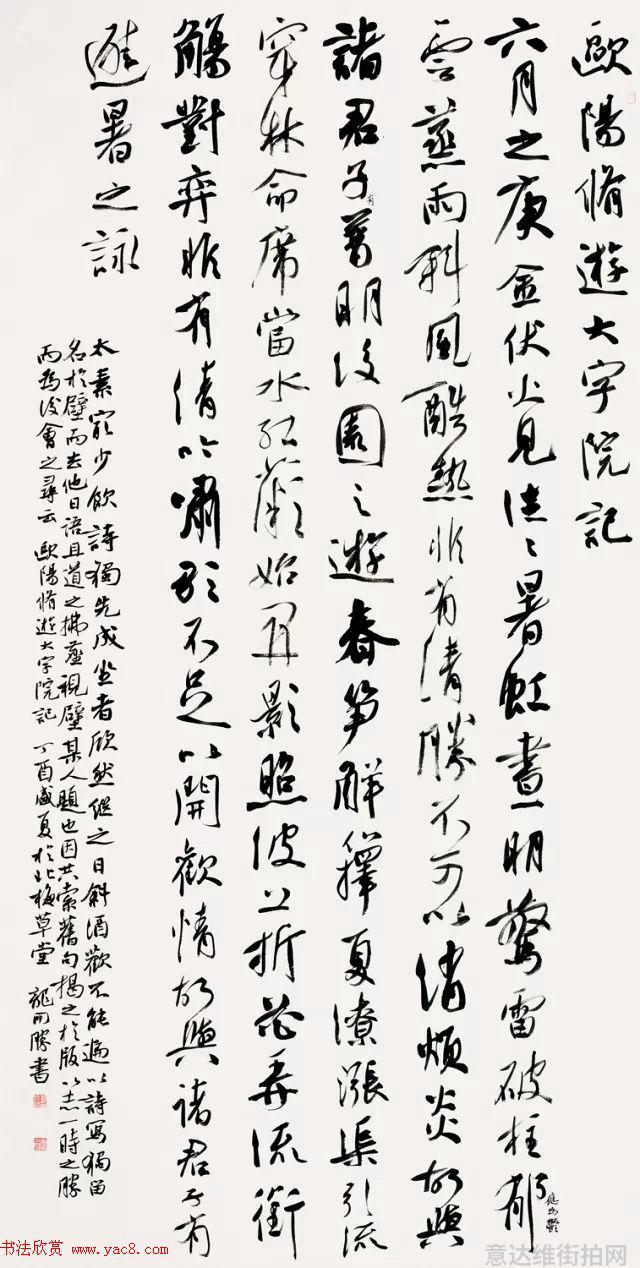 歐陽脩遊大字院記
六月之庚金伏火見往々暑虹晝明驚雷破柱郁
應為鬱
雲蒸雨斜風酷熱非有清勝不可以消煩炎故與
諸君子普明後園之遊春笋解籜夏潦漲渠引流
有
穿林命席當水紅薇始開影照波上折花弄流銜
觴對弈非有清吟嘯歌不足以開歡情故與諸君子有
避暑之詠
太素最少飲詩獨先成坐者欣然繼之日斜酒歡不能遍以詩寫獨留
名於壁而去他日語且道之拂塵視壁某人題也因共索舊句揭之於版以志一時之勝
而為後會之尋云 歐陽脩遊大字院記 丁酉盛夏於北梅草堂 龍開勝書
书法欣赏 www.yac8.com
意达维街拍网